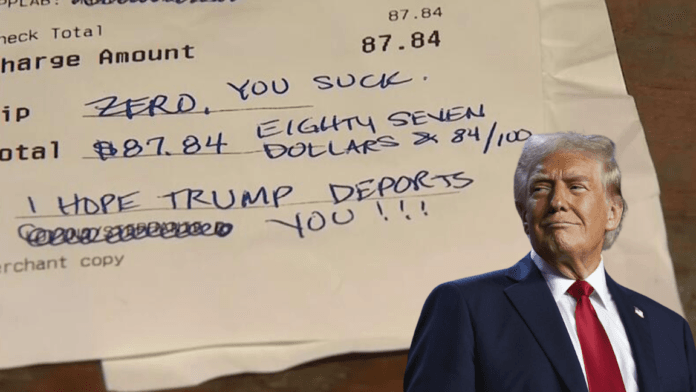 heck Total 87.84
harge Amount 87.84
ip ZERO. YOU SUCK.
otal $87.84 EIGHTY SEVEN
DOLLARS & 84/100
I HOPE TRUMP DEPORTS
YOU !!!
rchant copy